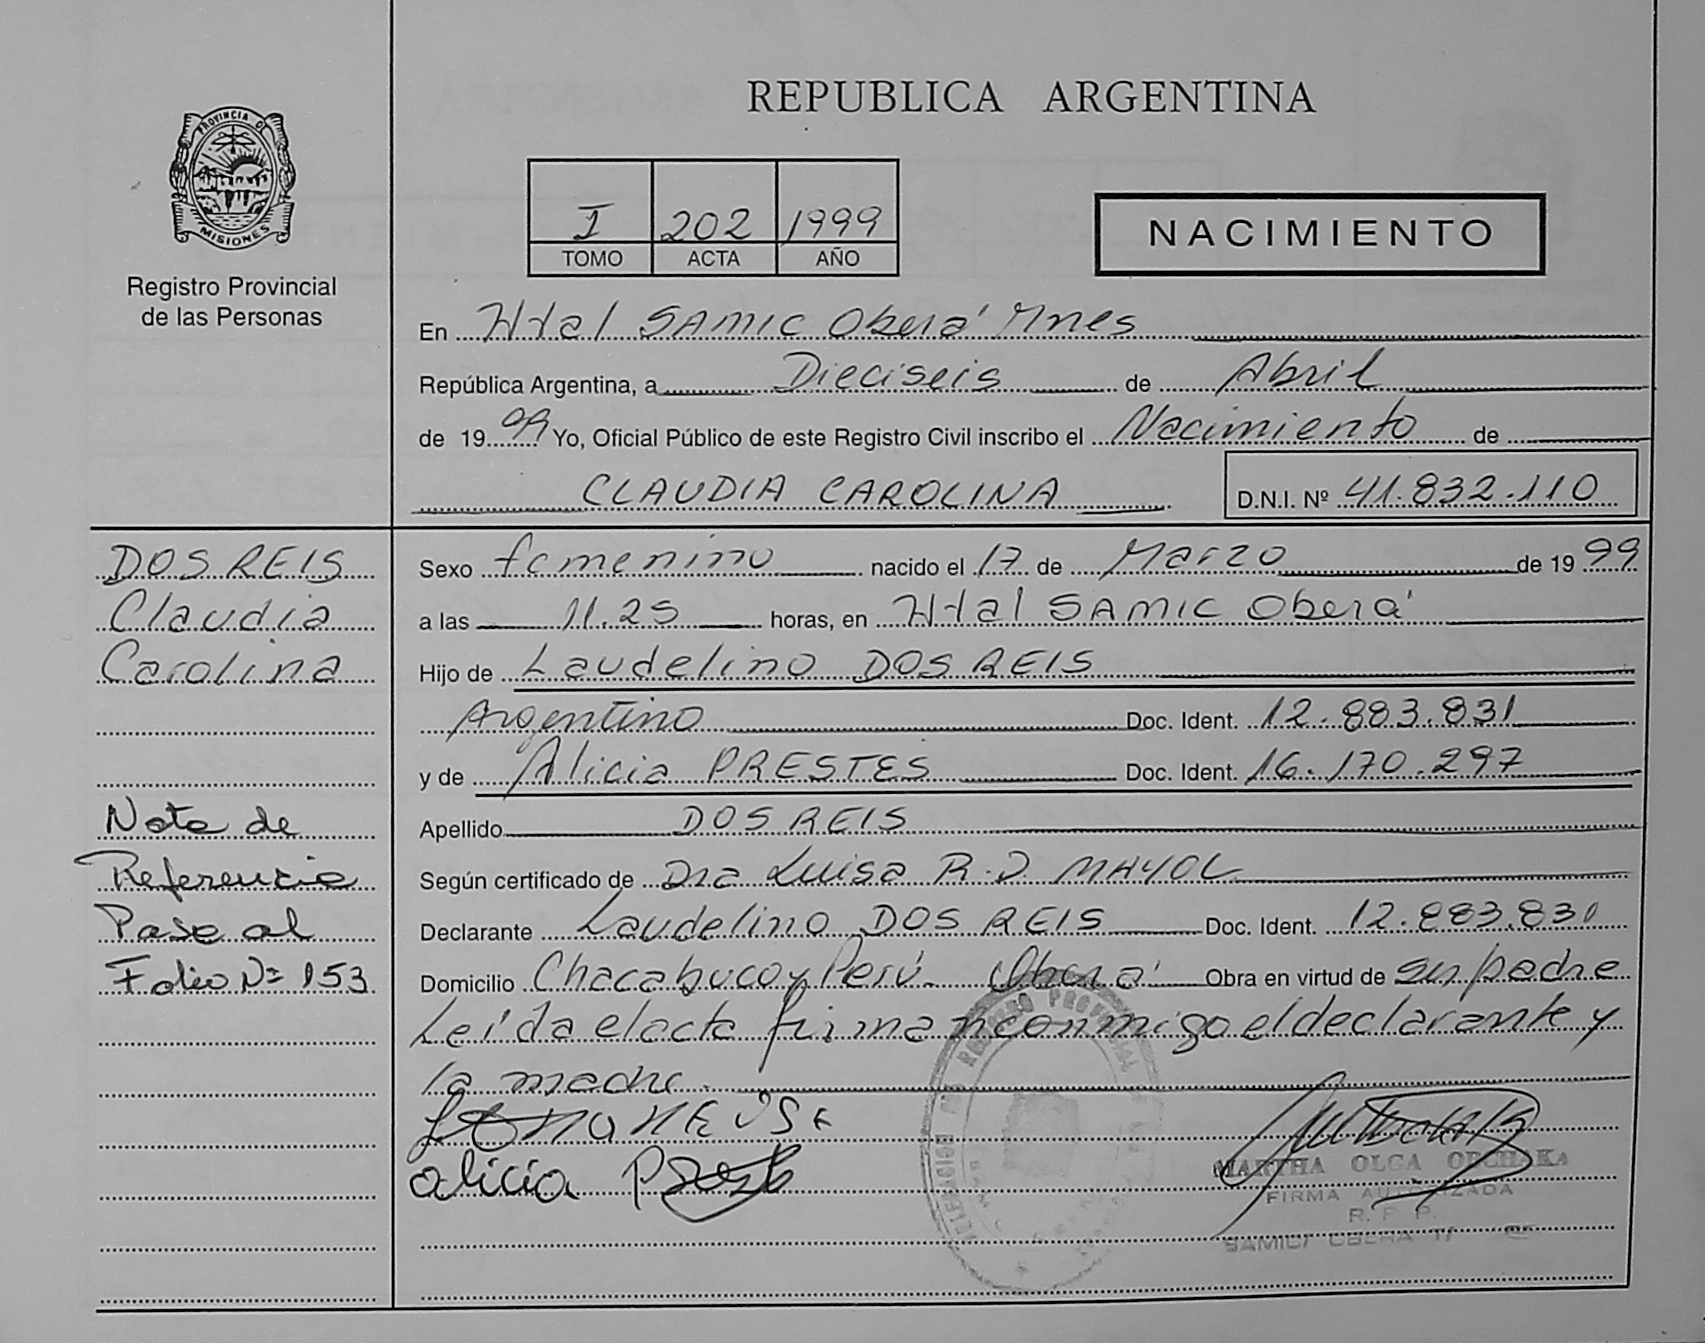 PROVINCIA DE
MISIONES
Registro Provincial
de las Personas
REPUBLICA ARGENTINA
I 202 1999
TOMO ACTA AÑO
NACIMIENTO
En Htal SAMIC Oberá Mnes
República Argentina, a Dieciseis de Abril
de 1999 Yo, Oficial Público de este Registro Civil inscribo el Nacimiento de
CLAUDIA CAROLINA D.N.I. Nº 41.832.110
DOS REIS
Claudia
Carolina
Nota de
Referencia
Pase al
Folio Nº 153
Sexo femenino nacido el 17 de Marzo de 1999
a las 11.25 horas, en Htal SAMIC Oberá
Hijo de Laudelino DOS REIS
Argentino Doc. Ident. 12.883.831
y de Alicia PRESTES Doc. Ident. 16.170.297
Apellido DOS REIS
Según certificado de Dra Luisa R.D. MAYOL
Declarante Laudelino DOS REIS Doc. Ident. 12.883.830
Domicilio Chacabuco y Perú Oberá Obra en virtud de su padre
Leída el acta firman conmigo el declarante y
la madre.
alicia
MARTHA OLGA ORCHAKA
FIRMA AUTORIZADA
R. P. P.